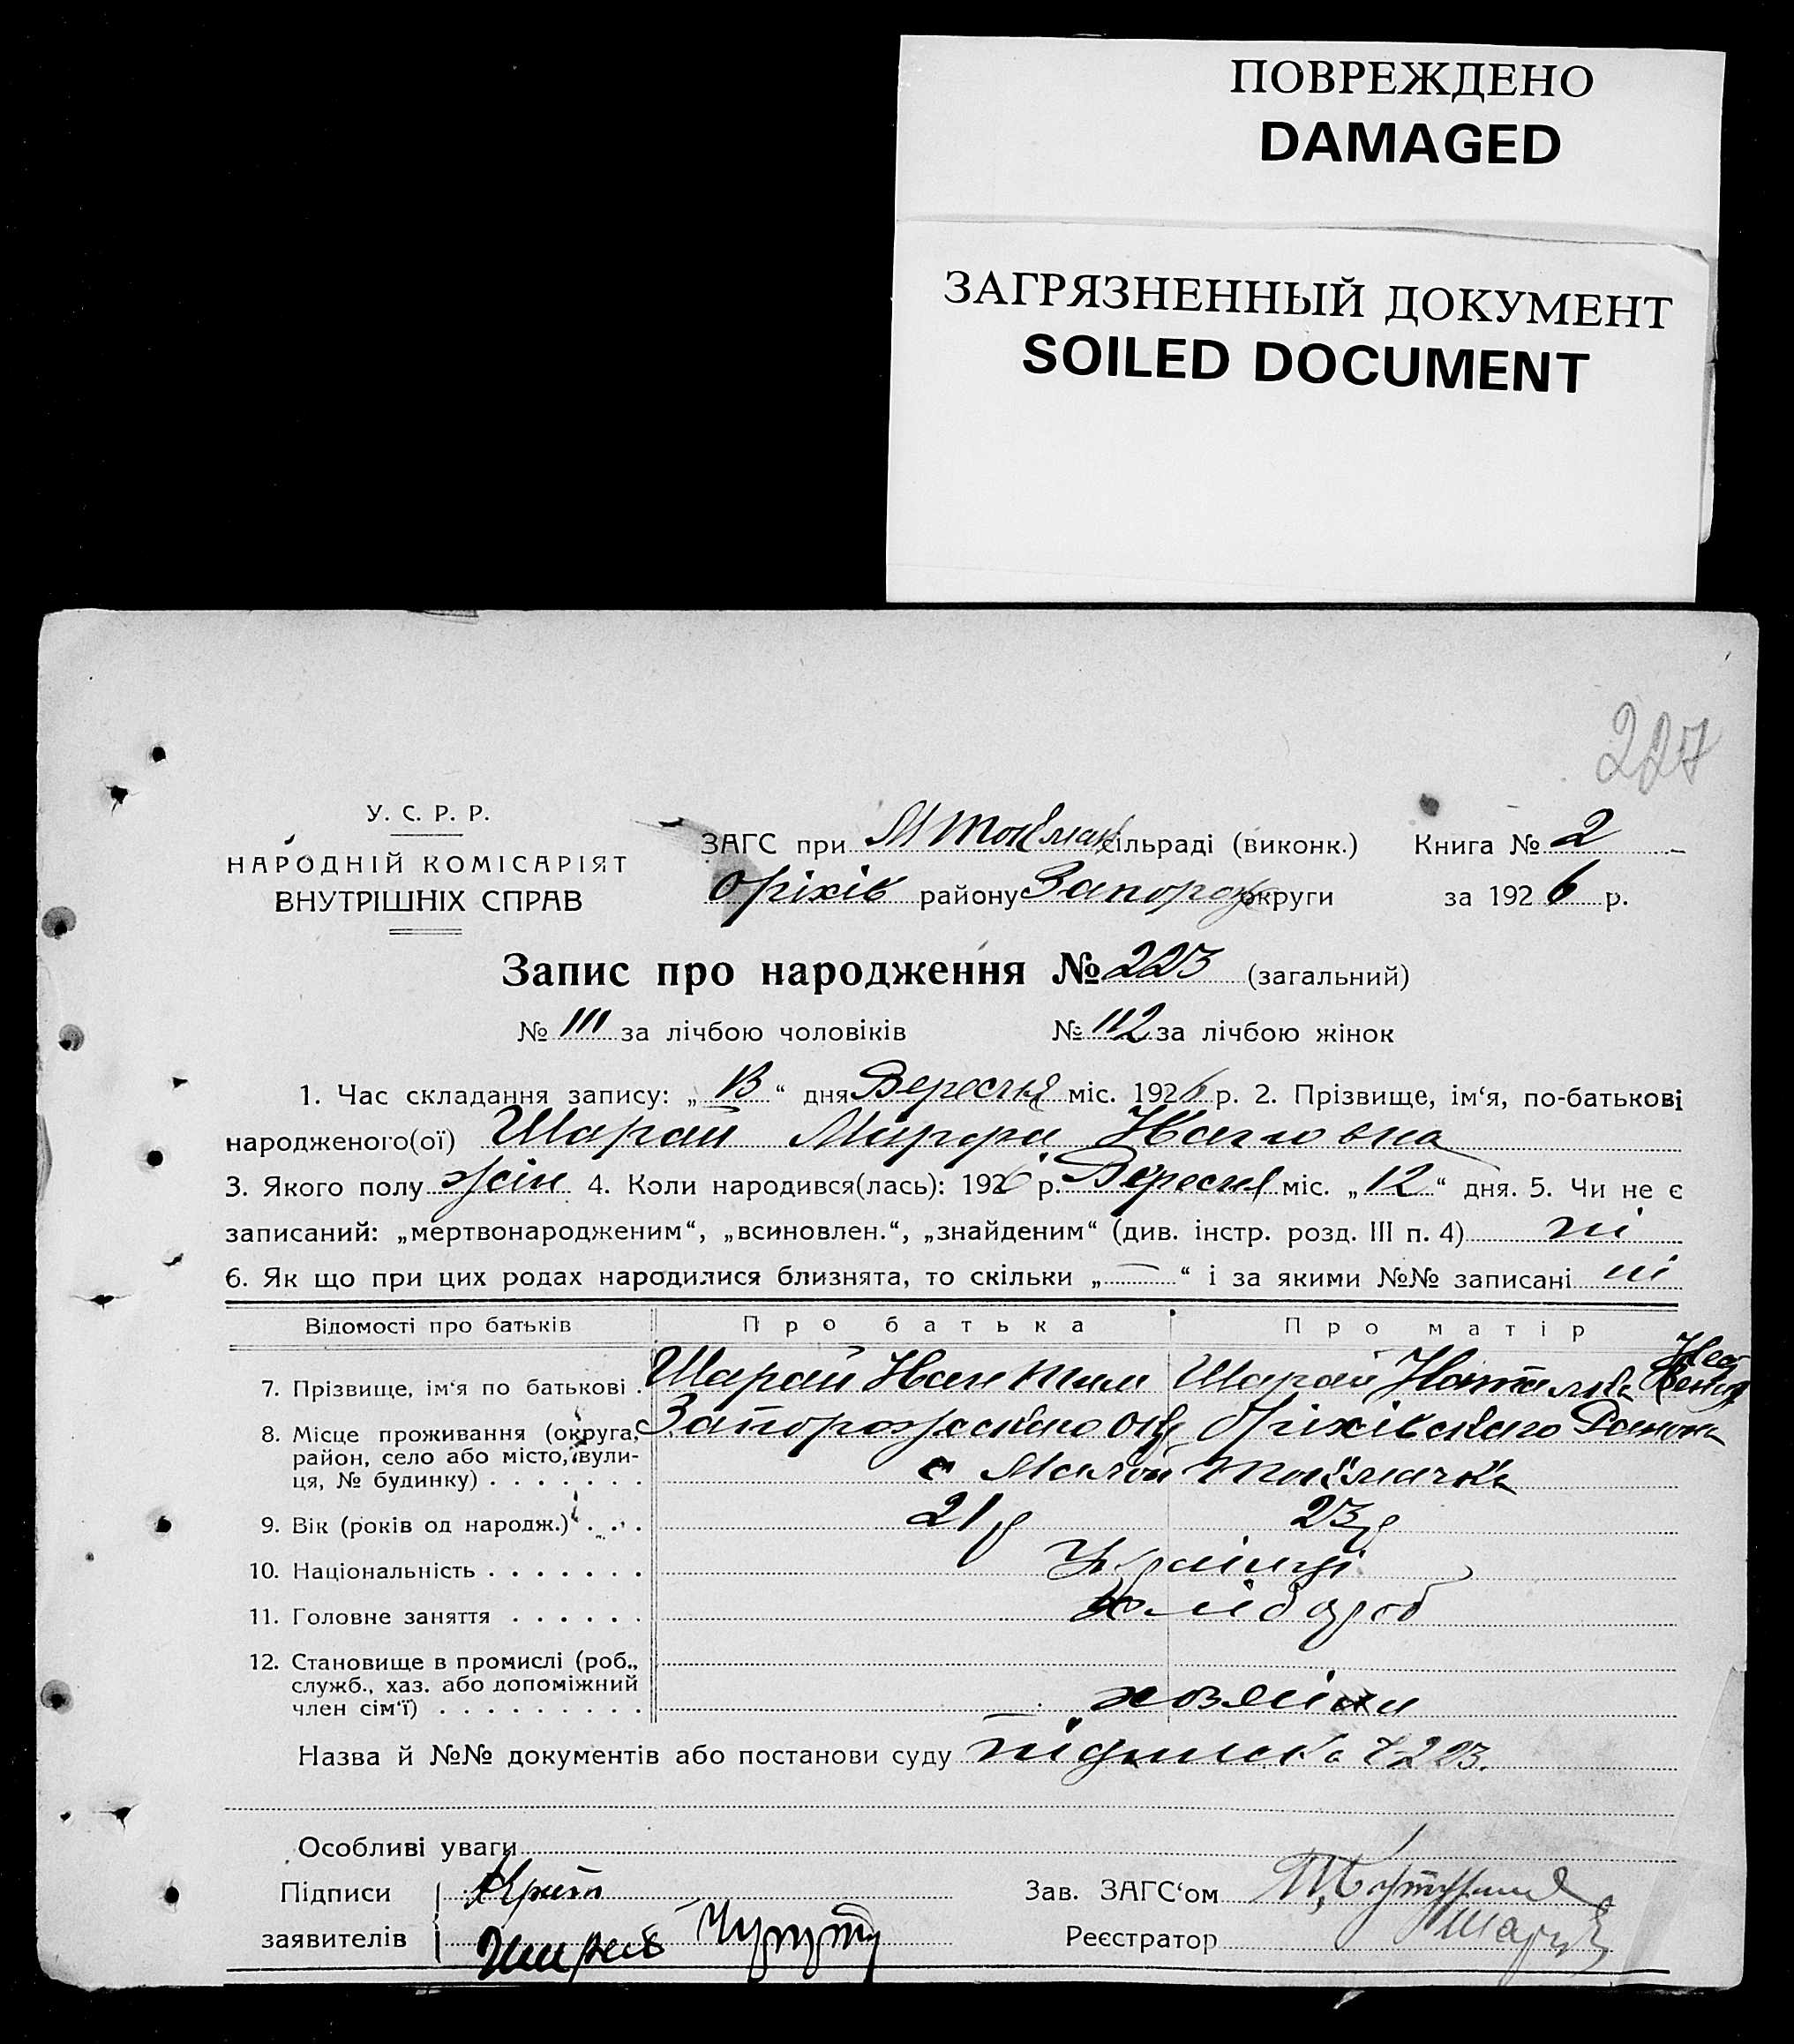 ПОВРЕЖДЕНО
DAMAGED
ЗАГРЯЗНЕННЫЙ ДОКУМЕНТ
SOILED DOCUMENT
227
У. С. Р. Р.
НАРОДНІЙ КОМІСАРІЯТ
ВНУТРІШНІХ СПРАВ
ЗАГС при М Токмак сільраді (виконк.) Книга № 2
Оріхів району Запорож округи за 1926 р.
Запис про народження № 223 (загальний)
№ 111 за лічбою чоловіків № 112 за лічбою жінок
1. Час складання запису: „ 13 “ дня Вересня міс. 1926 р. 2. Прізвище, ім‘я, по-батькові
народженого(ої) Шарай Марфа Ивановна
3. Якого полу жін 4. Коли народився(лась): 1926 р. Вересня міс. „ 12 “ дня. 5. Чи не є
записаний: „мертвонародженим“, „всиновлен.“, „знайденим“ (див. інстр. розд. III п. 4) ні
6. Як що при цих родах народилися близнята, то скільки „ — “ і за якими №№ записані ні
Відомості про батьків Про батька Про матір
7. Прізвище, ім‘я по батькові . Шарай Иван Шарай Наталка
8. Місце проживання (округа, Запорожського окр Оріхівського Району
район, село або місто, вули-
ця, № будинку) . . . . . . . с Малой Токмачки
9. Вік (років од народж.) . . . 21 р 23 р
10. Національність . . . . . . . Українці
11. Головне заняття . . . . . . Хлібороб
12. Становище в промислі (роб.,
служб., хаз. або допоміжний
член сім‘ї) . . . . . . . . . хозяіни
Назва й №№ документів або постанови суду підписка № 223.
Особливі уваги
Підписи
заявителів
Зав. ЗАГС‘ом
Реєстратор